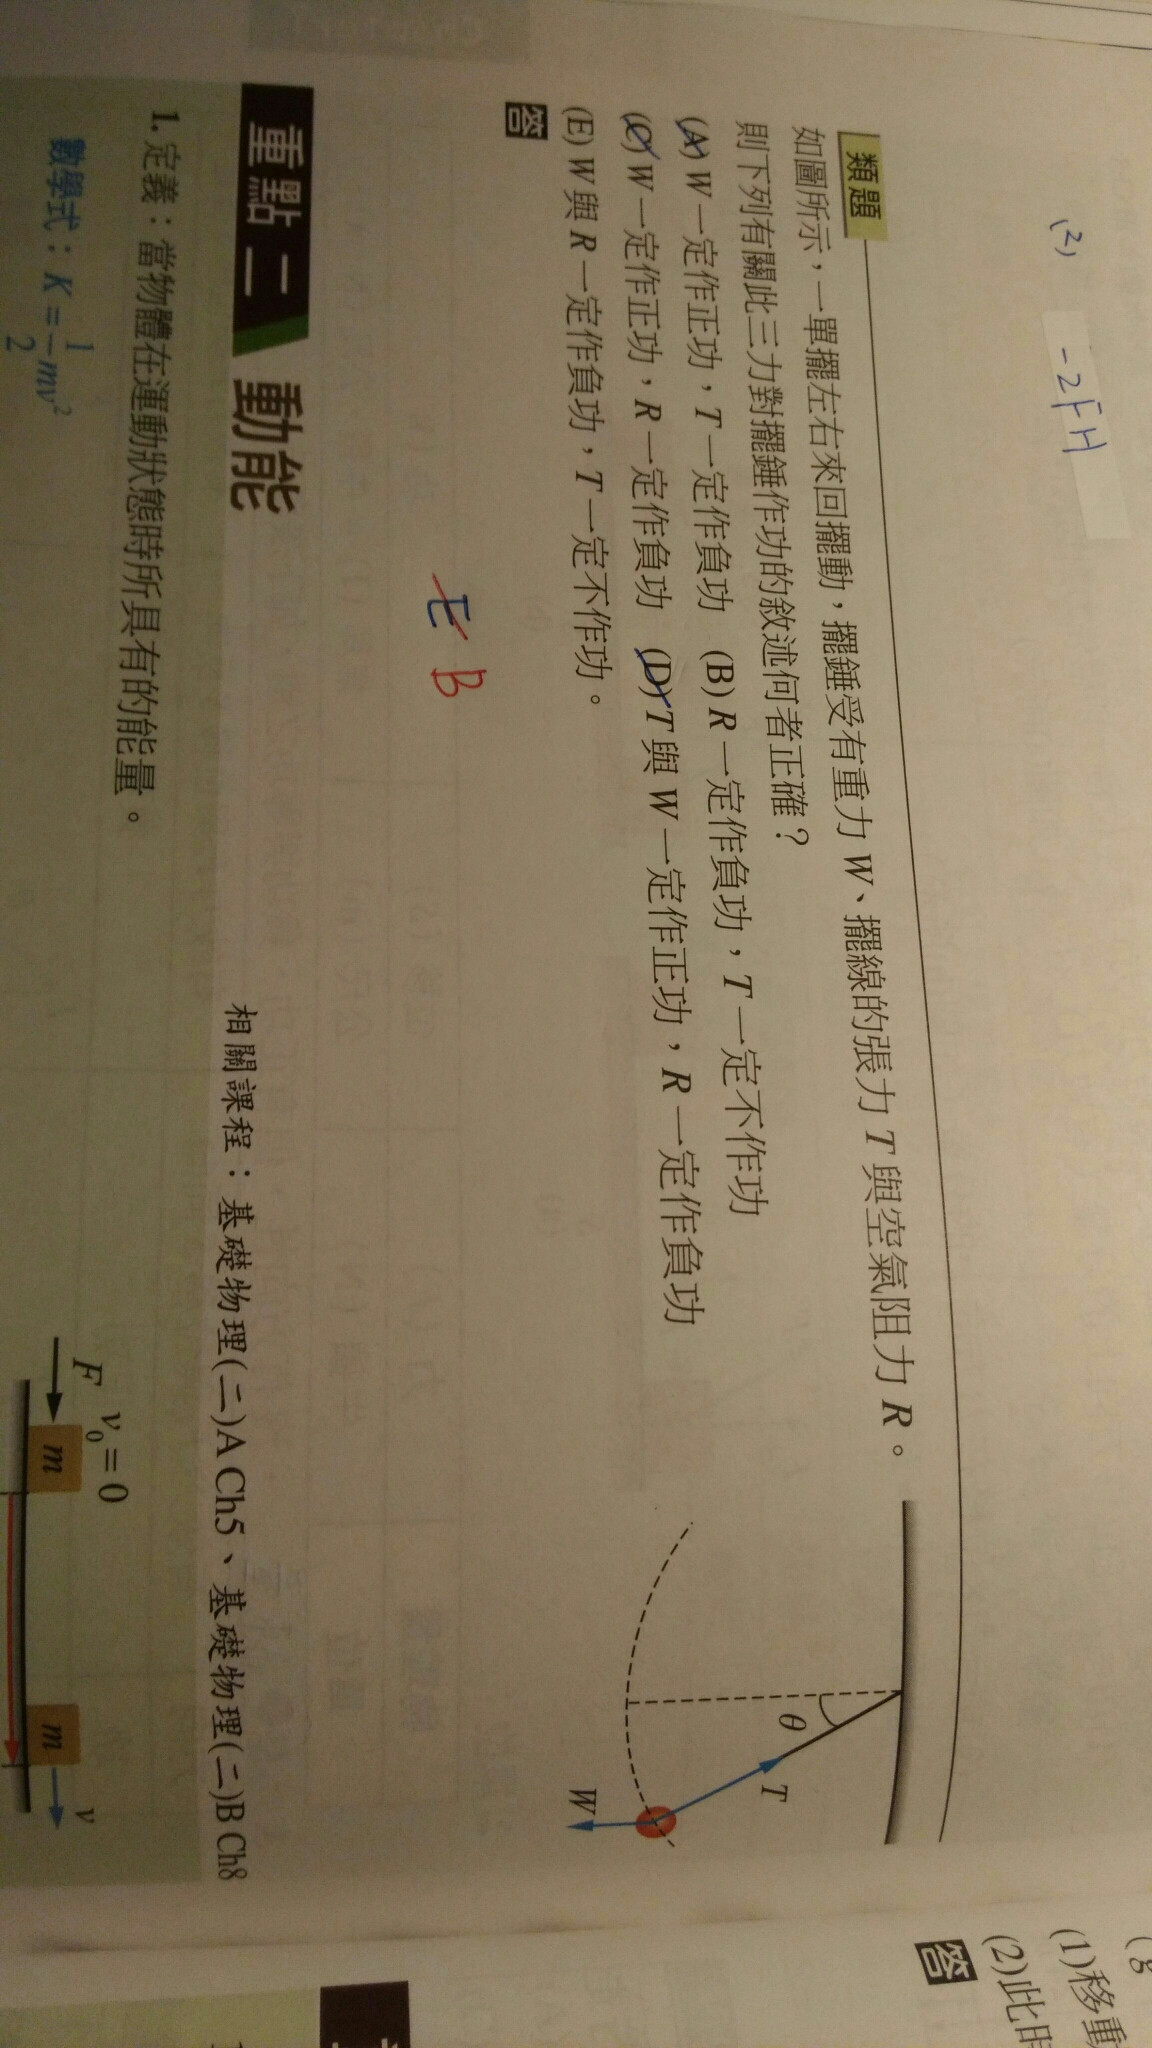 (2) -2FH
類題
如圖所示，一單擺左右來回擺動，擺錘受有重力 W、擺線的張力 T 與空氣阻力 R。
則下列有關此三力對擺錘作功的敘述何者正確？
(A) W 一定作正功，T 一定作負功 (B) R 一定作負功，T 一定不作功
(C) W 一定作正功，R 一定作負功 (D) T 與 W 一定作正功，R 一定作負功
(E) W 與 R 一定作負功，T 一定不作功。
答
θ
T
W
E B
重點二 動能
相關課程：基礎物理(二)A Ch5、基礎物理(二)B Ch8
1. 定義：當物體在運動狀態時所具有的能量。
數學式：K = 1/2 mv²
v₀ = 0
F
m
m
v
(1)移動
(2)此時
答